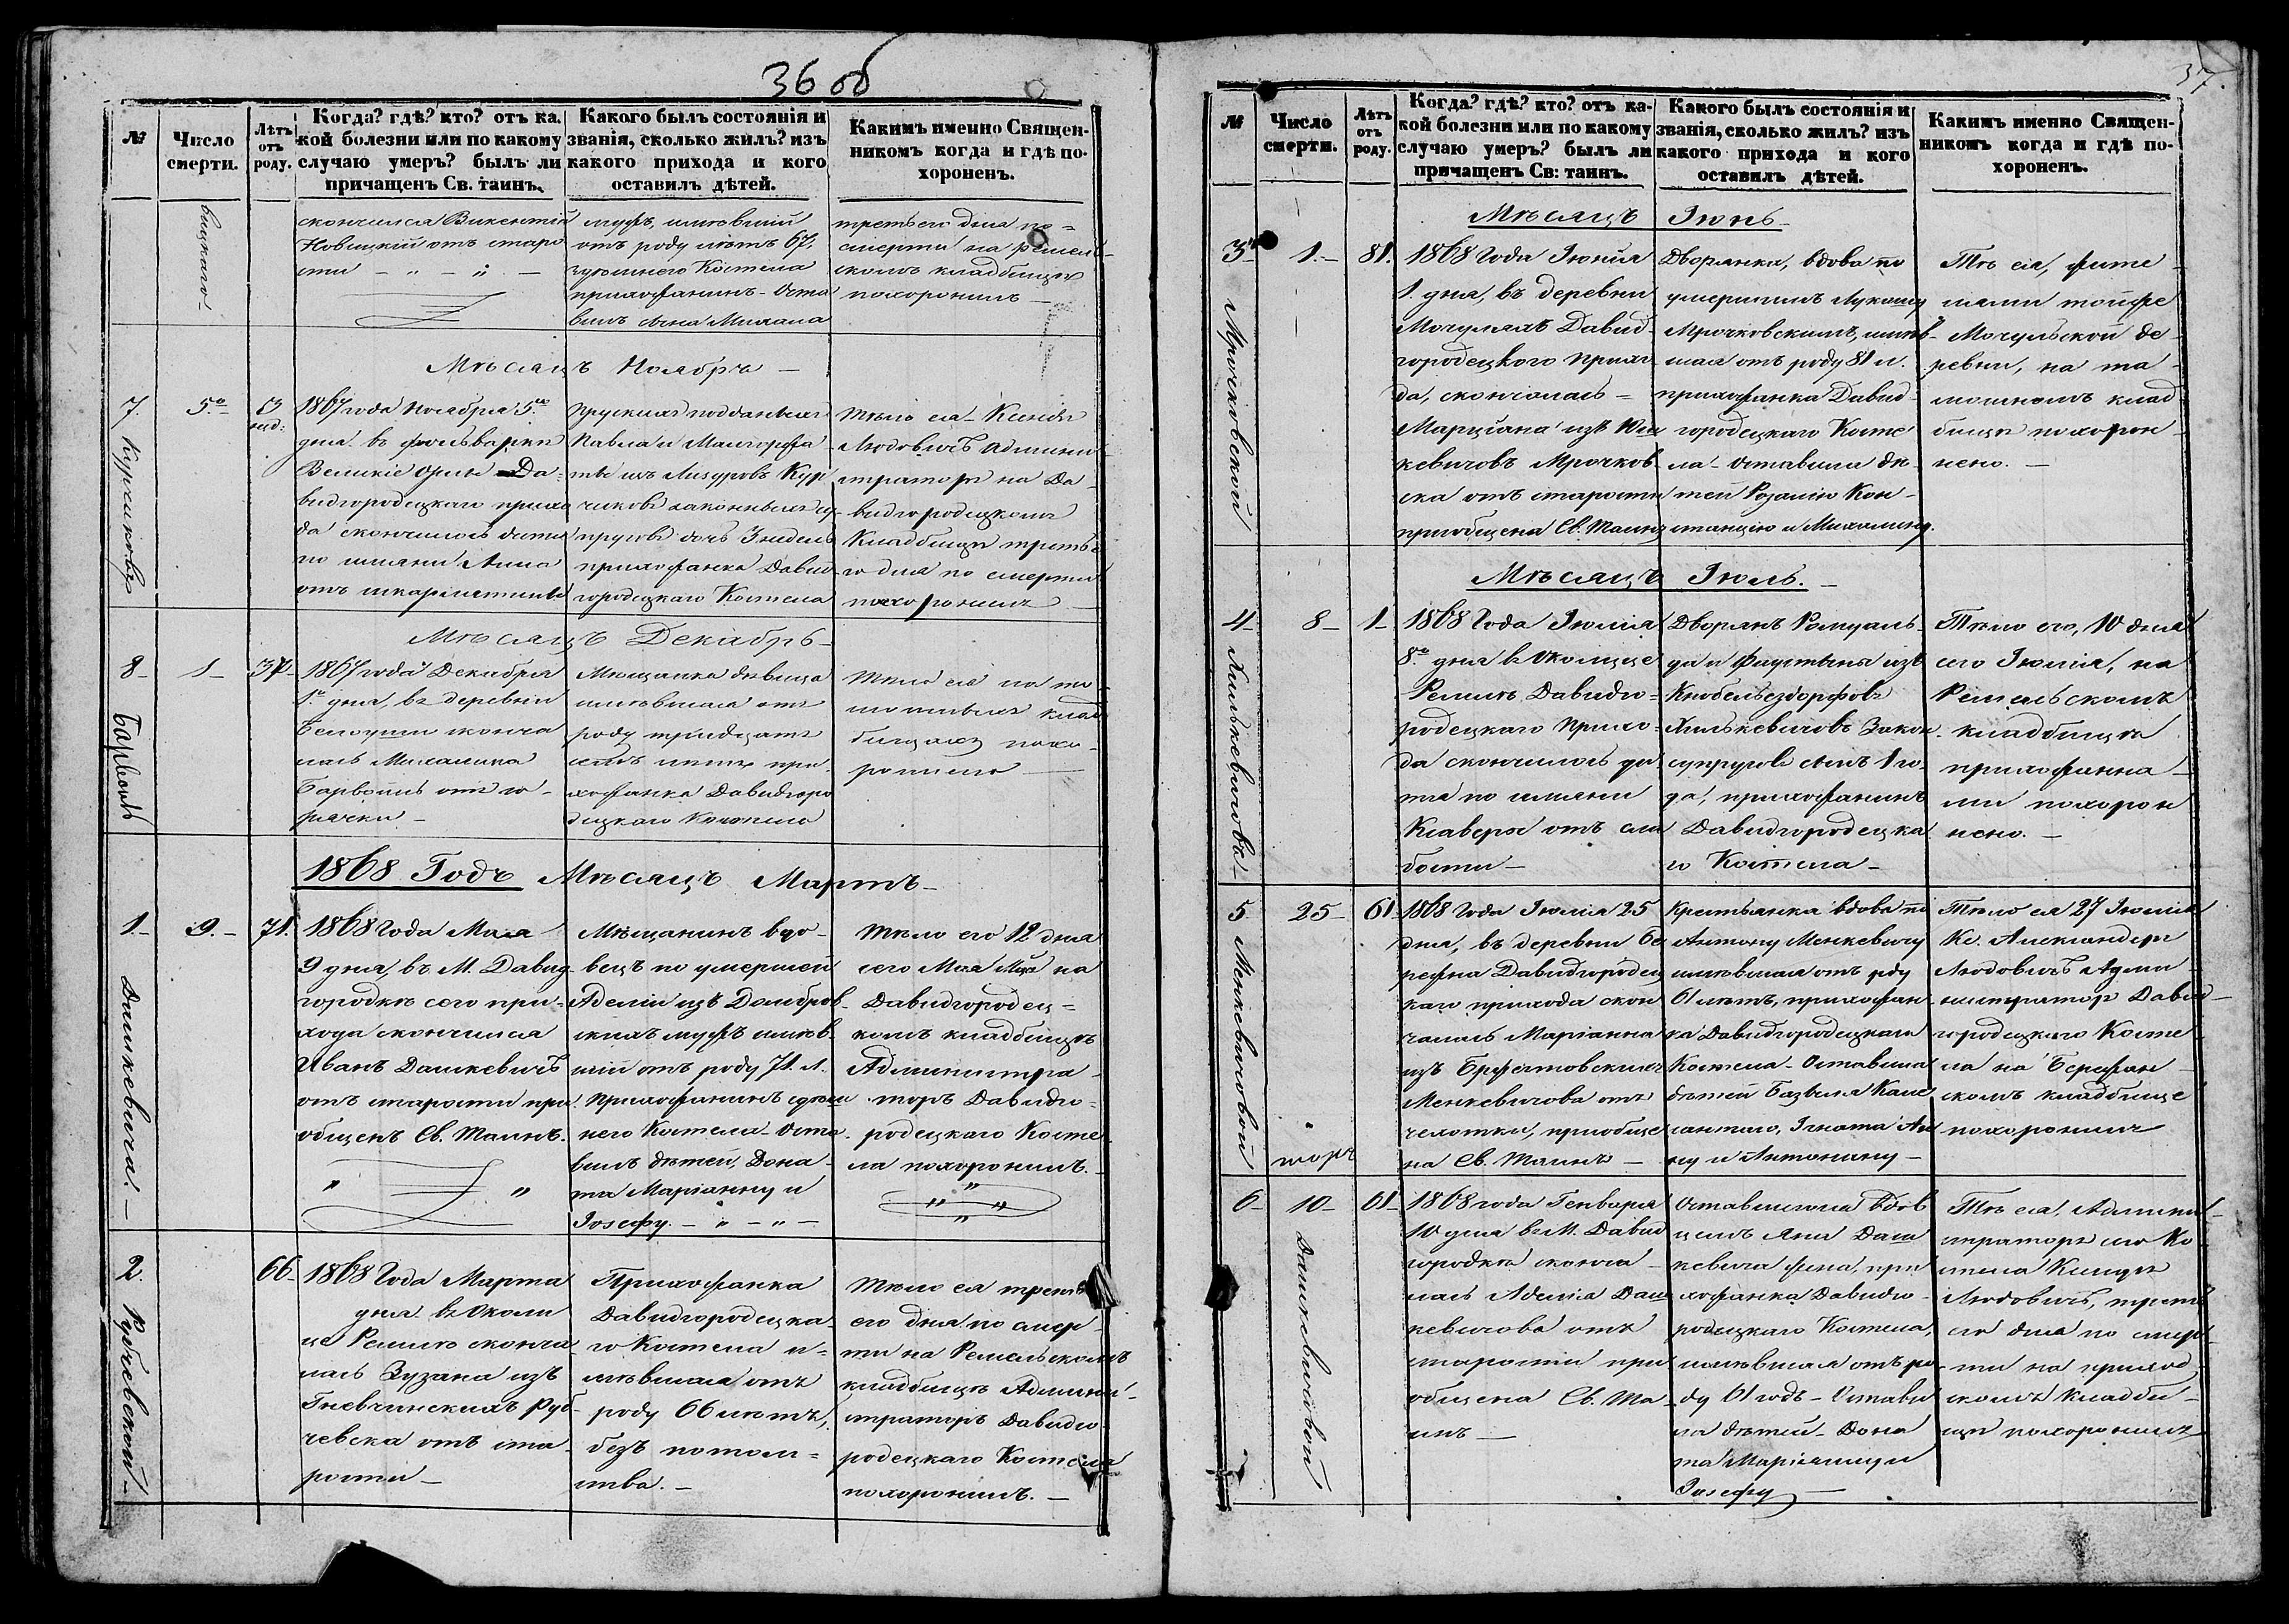 36 об
№
Число смерти.
Лѣтъ отъ роду.
Когда? гдѣ? кто? отъ ка-
кой болезни или по какому
случаю умеръ? былъ ли
причащенъ Св. таинъ.
Какого былъ состоянія и
званія, сколько жилъ? изъ
какого прихода и кого
оставилъ дѣтей.
Какимъ именно Священ-
никомъ когда и гдѣ по-
хороненъ.
вицкаго
скончался Викентій
Новицкій отъ старо
сти
мужъ, имѣвшій
отъ роду лѣтъ 67,
Костела
прихожанинъ - Оста
вилъ сына
третьего дня по=
смерти на Ремель-
скомъ кладбищѣ
похоронилъ
Мѣсяцъ Ноябрь
7.
5го
3 нед:
1867 года Ноября 5го
дня въ фольварки
Великіе Да-
видгородецкаго прихо
да скончалось дитя
по имяни Анна
отъ
Прускихъ подданныхъ
Павла и
законныхъ су-
пруговъ дочь 3 недель
прихожанка Давид-
городецкаго Костела
Тѣло ея Ксендзъ
Людовичъ Админи-
страторъ на Да-
видгородецкомъ
Кладбищѣ треть-
го дня по смерти
похоронилъ
Мѣсяцъ Декабрь
8
1
37
Барвойнъ
1867 года Декабря
1го дня, въ деревни
сконча
лась Михалина
отъ го-
рячки
Мещанка дѣвица
имѣвшая отъ
роду тридцать
семь лѣтъ при-
хожанка Давидгоро
децкаго Костела
Тѣло ея на
клад
бищахъ похо-
ронено
1868 Годъ Мѣсяцъ Мартъ
1.
9.
71.
Дашкевича.
1868 Года Мая
9 дня, въ М. Давид-
городкѣ сего при-
хода скончался
Иванъ Дашкевичъ
отъ старости при-
общенъ Св. Таинъ.
Мѣщанинъ вдо-
вецъ по умершей
Аделіи изъ Домбров-
скихъ мужъ имѣв-
шій отъ роду 71. л.
Прихожанинъ здѣш
него Костела - Оста-
вилъ дѣтей, Дона-
та Маріанну и
Іозефу.
Тѣло его 12 дня
сего Мая М-ца на
Давидгородец=
комъ кладбищѣ
Администра-
торъ Давидго=
родецкаго Косте
ла похоронилъ.
2.
66
Рубчевской
1868 Года Марта
дня въ Околи
це Ремлѣ сконча-
лась Зузана изъ
Гневчинскихъ Руб-
чевска отъ ста-
рости
Прихожанка
Давидгородецка-
го Костела и=
мѣвшая отъ
роду 66 лѣтъ,
безъ потом=
ства.
Тѣло ея треть-
его дня по смер-
ти на Ремельскомъ
кладбищѣ Админи-
страторъ Давидго
родецкаго Костела
похоронилъ.
37.
№
Число смерти.
Лѣтъ отъ роду.
Когда? гдѣ? кто? отъ ка-
кой болезни или по какому
случаю умеръ? былъ ли
причащенъ Св: таинъ.
Какого былъ состоянія и
званія, сколько жилъ? изъ
какого прихода и кого
оставилъ дѣтей.
Какимъ именно Священ-
никомъ когда и гдѣ по-
хороненъ.
Мѣсяцъ Іюнь
3
1.
81.
Мрочковской
1868 Года Іюнія
1. дня, въ деревни
Мочуляхъ Давид-
городецкого прихо
да, скончалась =
Марціана изъ Юш
кевичовъ Мрочков-
ска отъ старости
приобщена Св. Таинъ
Дворянка, вдова по
умершимъ Лукашу
Мрочковскимъ, имѣв-
шая отъ роду 81 л.
прихожанка Давид-
городецкаго Косте
ла - Оставила дѣ-
тей Розалію Кон-
станцію и Михалину.
Тѣ ея, жите-
лями тойже
Мочульской де-
ревни, на та-
мошномъ клад
бищѣ похорон-
нено.
Мѣсяцъ Іюль.
4
8
1
Хилькевичовъ
1868 Года Іюлія
8го дня въ Околице
Ремлѣ Давидго=
родецкаго прихо-
да скончалось ди-
тя по имяни
Ксаверы отъ сла
бости
Дворянъ Ромуаль-
да и Фаустыны изъ
Кнобельсдорфовъ
Хилькевичовъ Закон.
супруговъ сынъ 1 го-
да, прихожанинъ
Давидгородецка
го Костела
Тѣло его, 10 дня
сего Іюлія, на
Ремельскомъ
кладбищѣ
прихожана-
ми похорон
нено.
5
25
61
Менкевичовой
1868 Года Іюлія 25
дня, въ деревни Бе
режна Давидгородец
каго прихода скон
чалась Маріанна
изъ
Менкевичова отъ
чехотки, приобще
на Св. Таинъ
Крестьянка вдова по
Антону Менкевичу
имѣвшая отъ роду
61 лѣтъ, прихожан
ка Давидгородецкаго
Костела - Оставила
дѣтей Базыля Кале
сантаго, Игната Ан
ну и Антонину
Тѣло ея 27 Іюлія
Кс. Александеръ
Людовичъ Адми-
нистраторъ Давид-
городецкого Косте
ла на Бережан-
скомъ кладбище
похоронилъ
6
10
61
Дашкевичовой
1868 года Генваря
10 дня въ М. Давид
городкѣ сконча-
лась Аделія Даш
кевичова отъ
старости при
общена Св. Та-
инъ
Оставшегося вдов
цемъ Яна Даш
кевича жена, при
хожанка Давидго-
родецкаго Костела,
имѣвшая отъ ро-
ду 61 годъ - Остави
ла дѣтей - Дона
та Маріанну и
Іозефу
Тѣ ея, Админи-
страторъ Ко
стела Ксендзъ
Людовичъ, треть
его дня по смер-
ти на приход-
скомъ Кладби-
щѣ похоронилъ